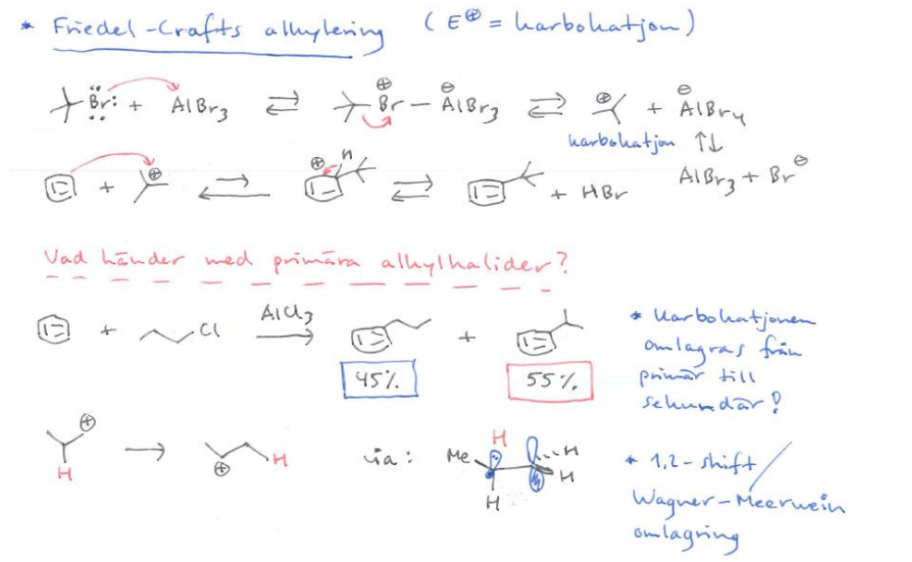 * Friedel-Crafts alkylering (E⊕ = karbokatjon)
Br: + AlBr3 ⇌ ⊕ Br - ⊖ AlBr3 ⇌ ⊕ + ⊖ AlBr4
karbokatjon ↑↓
+ ⊕ ⇌ ⊕ H ⇌ + HBr AlBr3 + Br⊖
Vad händer med primära alkylhalider?
+ Cl AlCl3 → +
45% 55%
* Karbokatjonen
omlagras från
primär till
sekundär?
⊕ H → ⊕ H via: Me H H H H
* 1,2-shift/
Wagner-Meerwein
omlagring